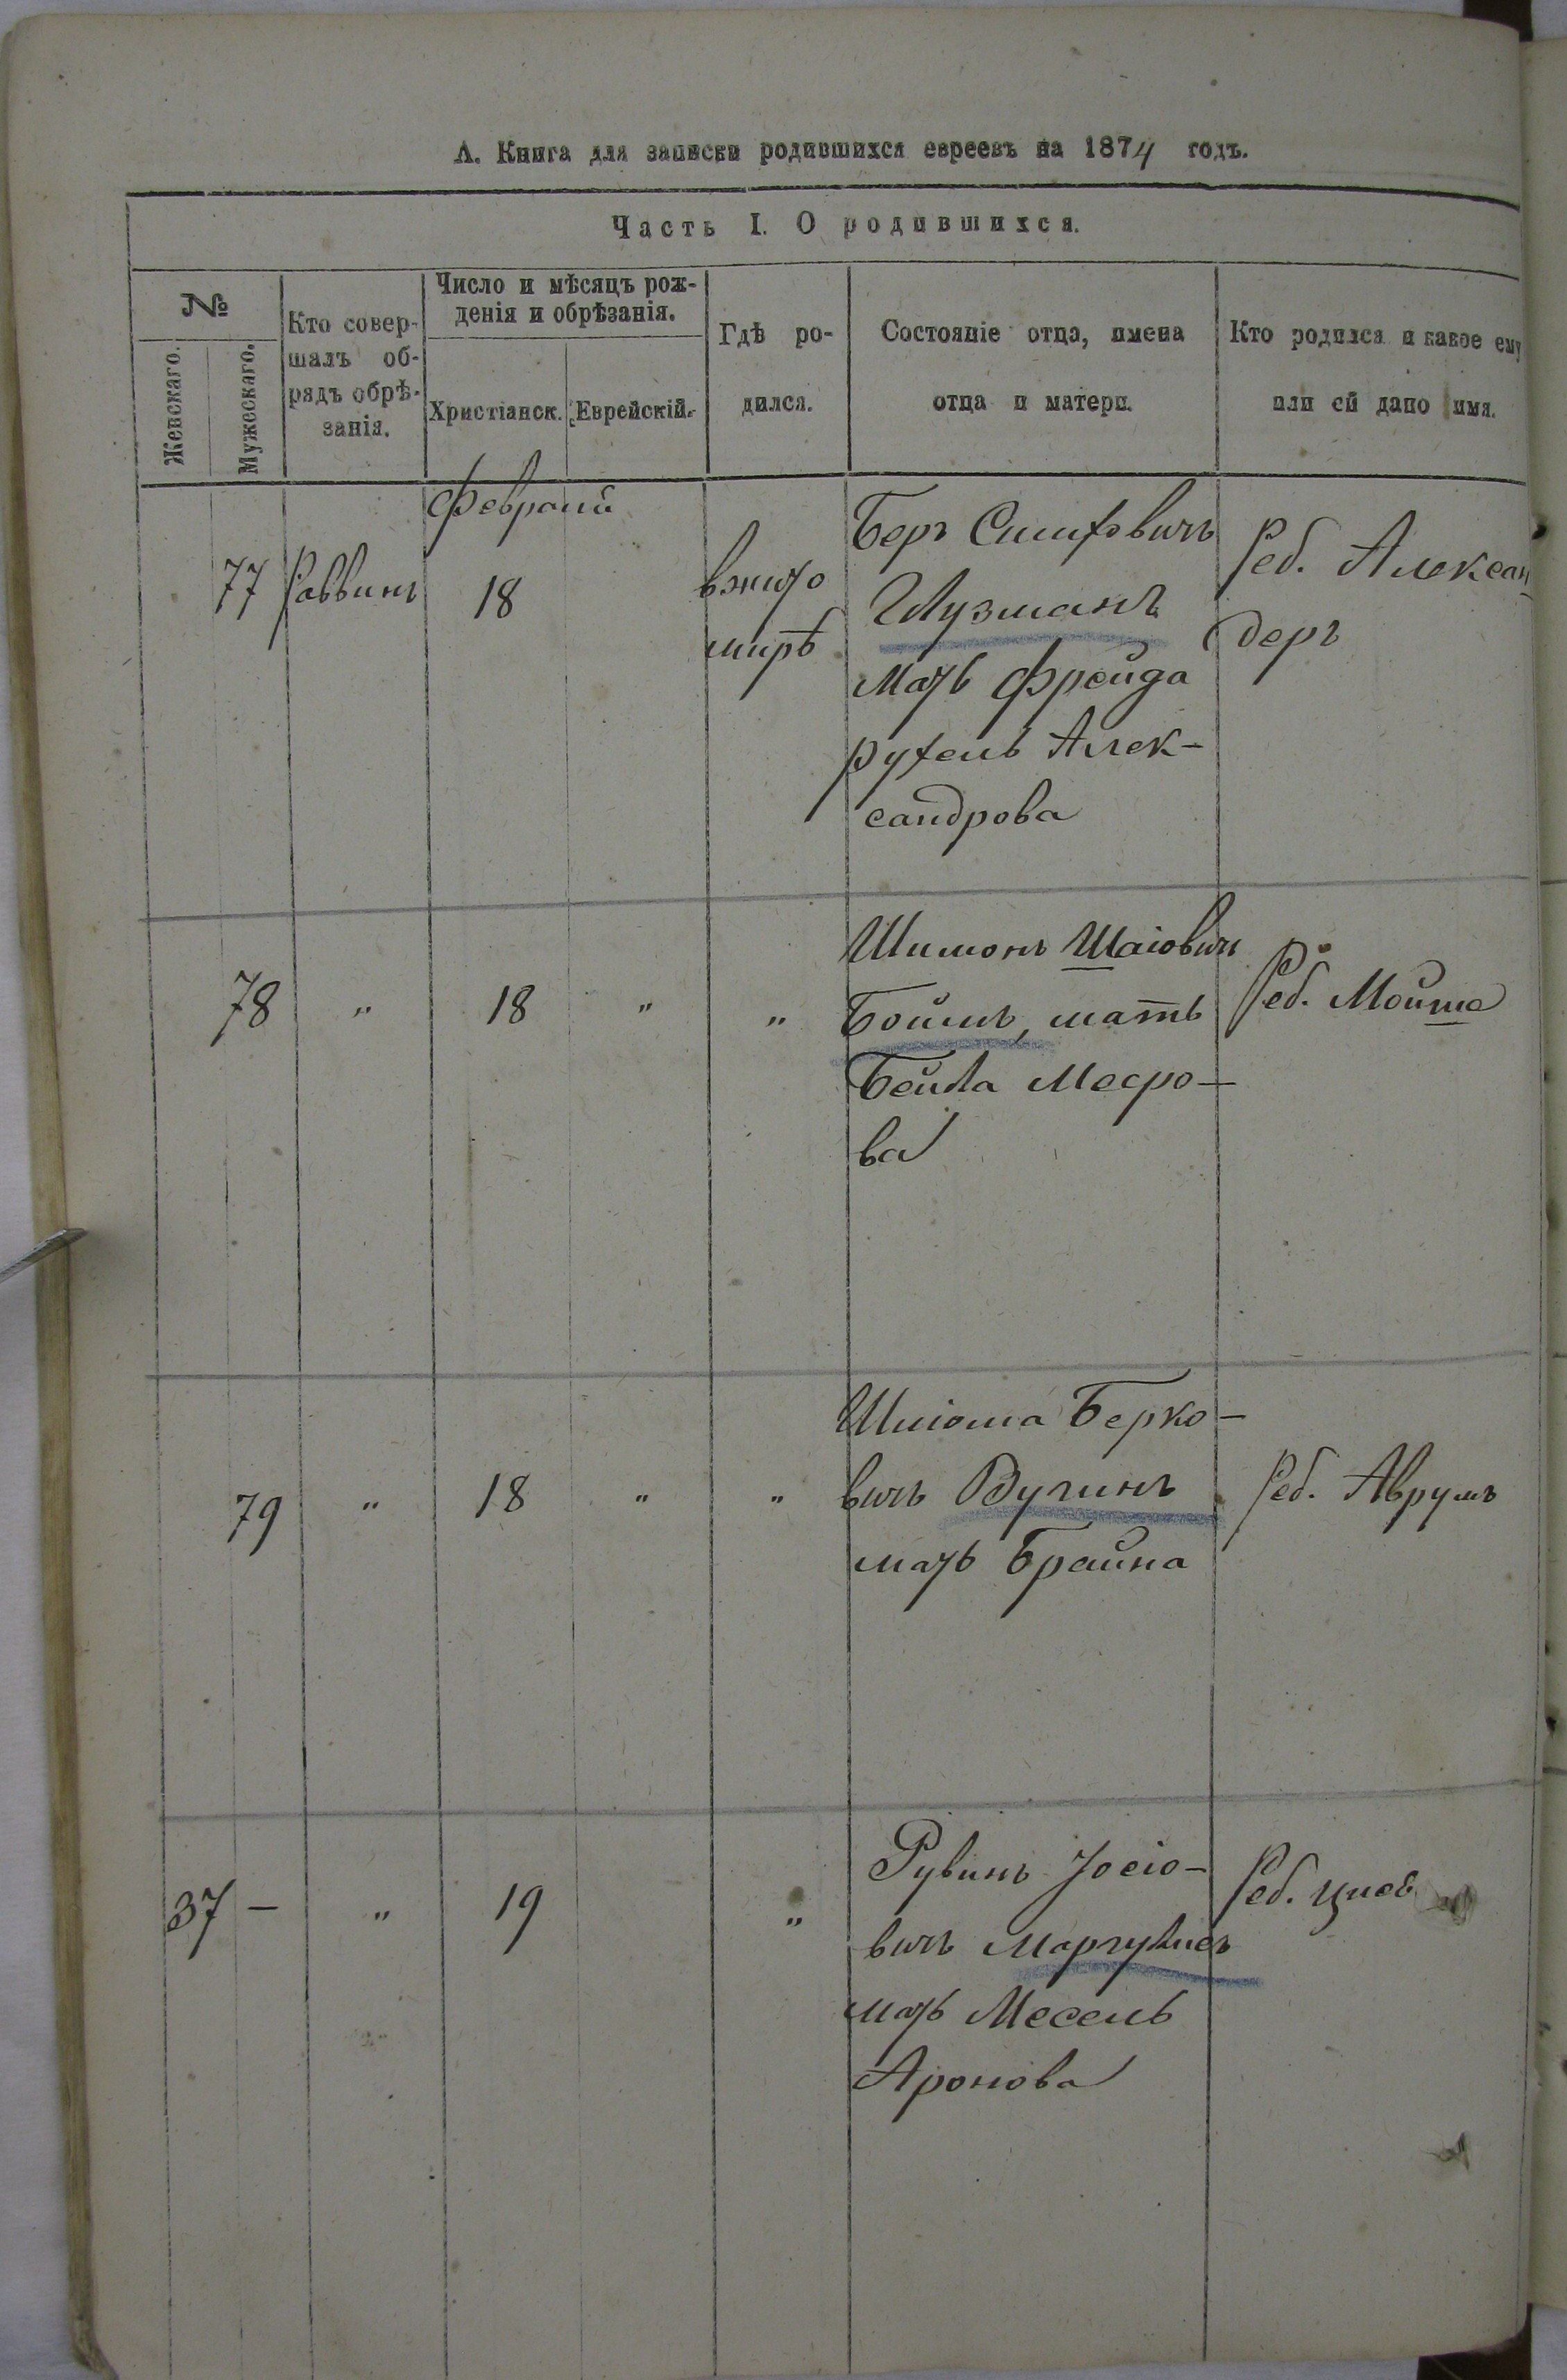 А. Книга для записки родившихся евреевъ на 1874 годъ.
Часть I. О родившихся.
№
Женскаго.
Мужескаго.
Кто совер-
шалъ об-
рядъ обрѣ-
занія.
Число и мѣсяцъ рож-
денія и обрѣзанія.
Христіанск.
Еврейскій.
Гдѣ ро-
дился.
Состояніе отца, имена
отца и матери.
Кто родился и какое ему
или ей дано имя.
Февраля
77
Раввинъ
18
вжито
мирѣ
Беръ
Глузманъ
мать Фрейда
Рухель Алек-
сандрова
Реб. Алексан
деръ
78
"
18
"
"
Шимонъ Шаіовичъ
Боймъ, мать
Бейла Мееро-
ва
Реб. Мойше
79
"
18
"
"
Шліома Берко-
вичъ
мать Брайна
Реб. Аврумъ
37 —
"
19
"
Рувинъ Іосіо-
вичъ Маргулисъ
мать
Аронова
Реб.